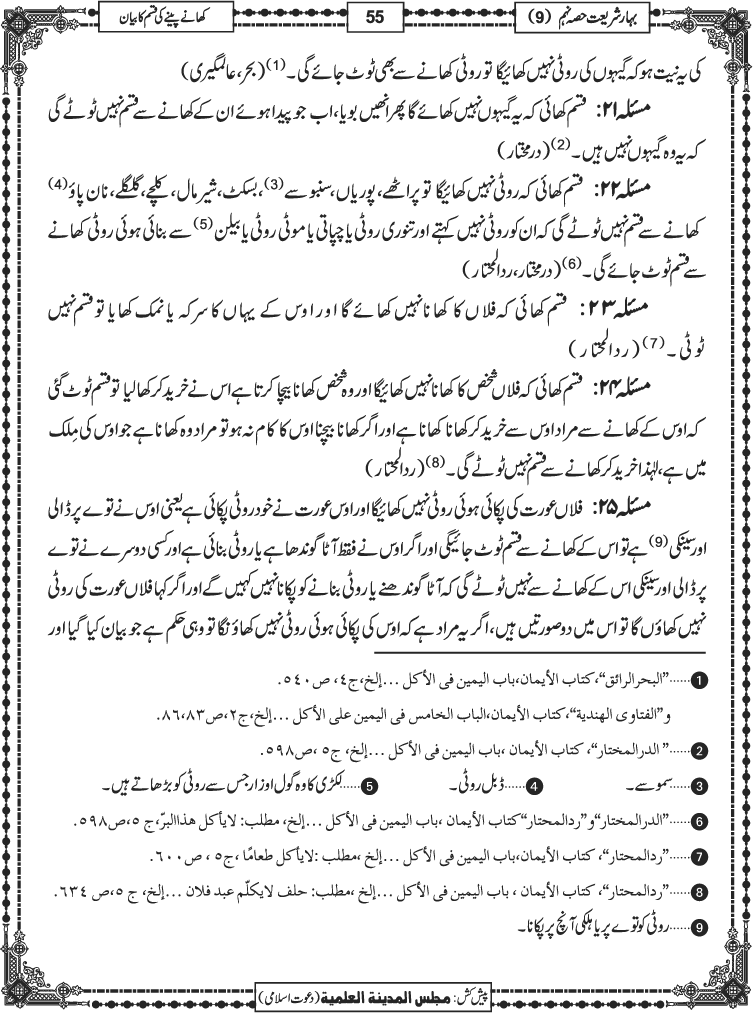 بہارِ شریعت حصہ نہم (9)
55
کھانے پینے کی قسم کا بیان
کی یہ نیت ہو کہ گیہوں کی روٹی نہیں کھائیگا تو روٹی کھانے سے بھی ٹوٹ جائے گی۔ (1) (بحر، عالمگیری)
مسئلہ ۲۱: قسم کھائی کہ یہ گیہوں نہیں کھائے گا پھر انھیں بویا، اب جو پیدا ہوئے ان کے کھانے سے قسم نہیں ٹوٹے گی
کہ یہ وہ گیہوں نہیں ہیں۔ (2) (درمختار)
مسئلہ ۲۲: قسم کھائی کہ روٹی نہیں کھائیگا تو پراٹھے، پوریاں، سنبوسے (3)، بسکٹ، شیر مال، کلچے، گلگلے، نان پاؤ (4)
کھانے سے قسم نہیں ٹوٹے گی کہ ان کو روٹی نہیں کہتے اور تنوری روٹی یا چپاتی یا موٹی روٹی یا بیلن (5) سے بنائی ہوئی روٹی کھانے
سے قسم ٹوٹ جائے گی۔ (6) (درمختار، ردالمحتار)
مسئلہ ۲۳: قسم کھائی کہ فلاں کا کھانا نہیں کھائے گا اور اوس کے یہاں کا سرکہ یا نمک کھایا تو قسم نہیں
ٹوٹی۔ (7) (ردالمحتار)
مسئلہ ۲۴: قسم کھائی کہ فلاں شخص کا کھانا نہیں کھائیگا اور وہ شخص کھانا بیچا کرتا ہے اس نے خرید کر کھا لیا تو قسم ٹوٹ گئی
کہ اوس کے کھانے سے مراد اوس سے خرید کر کھانا کھانا ہے اور اگر کھانا بیچنا اوس کا کام نہ ہو تو مراد وہ کھانا ہے جو اوس کی مِلک
میں ہے، لہٰذا خرید کر کھانے سے قسم نہیں ٹوٹے گی۔ (8) (ردالمحتار)
مسئلہ ۲۵: فلاں عورت کی پکائی ہوئی روٹی نہیں کھائیگا اور اوس عورت نے خود روٹی پکائی ہے یعنی اوس نے توے پر ڈالی
اور سینکی (9) ہے تو اس کے کھانے سے قسم ٹوٹ جائیگی اور اگر اوس نے فقط آٹا گوندھا ہے یا روٹی بنائی ہے اور کسی دوسرے نے توے
پر ڈالی اور سینکی اس کے کھانے سے نہیں ٹوٹے گی کہ آٹا گوندھنے یا روٹی بنانے کو پکانا نہیں کہیں گے اور اگر کہا فلاں عورت کی روٹی
نہیں کھاؤں گا تو اس میں دو صورتیں ہیں، اگر یہ مراد ہے کہ اوس کی پکائی ہوئی روٹی نہیں کھاؤنگا تو وہی حکم ہے جو بیان کیا گیا اور
1 ......"البحرالرائق"، کتاب الأیمان،باب الیمین فی الأکل ...إلخ،ج٤، ص٥٤٠.
و"الفتاوی الهندية"، کتاب الأیمان،الباب الخامس فی الیمین علی الأکل ...إلخ،ج٢،ص٨٣،٨٦.
2 ......" الدرالمختار"، کتاب الأیمان ،باب الیمین فی الأکل ...إلخ، ج٥ ،ص٥٩٨.
3 ......سموسے۔ 4 ......ڈبل روٹی۔ 5 ......لکڑی کا وہ گول اوزار جس سے روٹی کو بڑھاتے ہیں۔
6 ......"الدرالمختار"و"ردالمحتار"کتاب الأیمان ،باب الیمین فی الأکل ...إلخ، مطلب: لایأکل هذاالبرّ،ج٥ ،ص٥٩٨.
7 ......"ردالمحتار"، کتاب الأیمان،باب الیمین فی الأکل ...إلخ ،مطلب :لایأکل طعامًا ،ج٥ ، ص٦٠٠.
8 ......"ردالمحتار"، کتاب الأیمان ، باب الیمین فی الأکل ...إلخ ،مطلب: حلف لایکلّم عبد فلان ...إلخ، ج ٥ ،ص ٦٣٤.
9 ......روٹی کو توے پر یا ہلکی آنچ پر پکانا۔
پیش کش: مجلس المدينة العلمية (دعوت اسلامی)